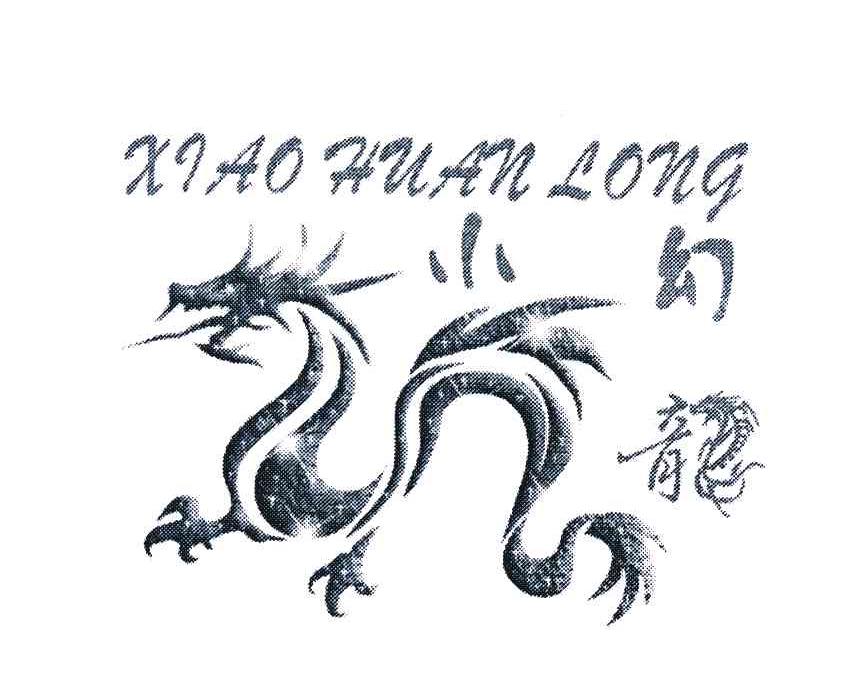 XIAO HUAN LONG
小
幻
龍